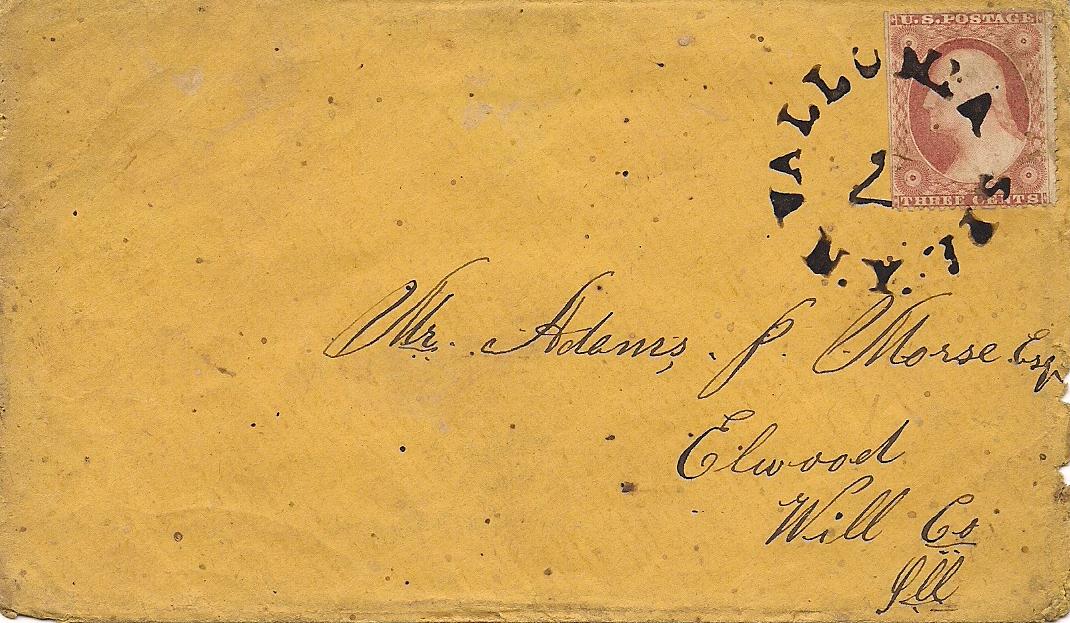 U.S.POSTAGE
THREE CENTS
VALLONIA
N.Y.
Mr. Adams, J. Morse Esq
Elwood
Will Co
Ill